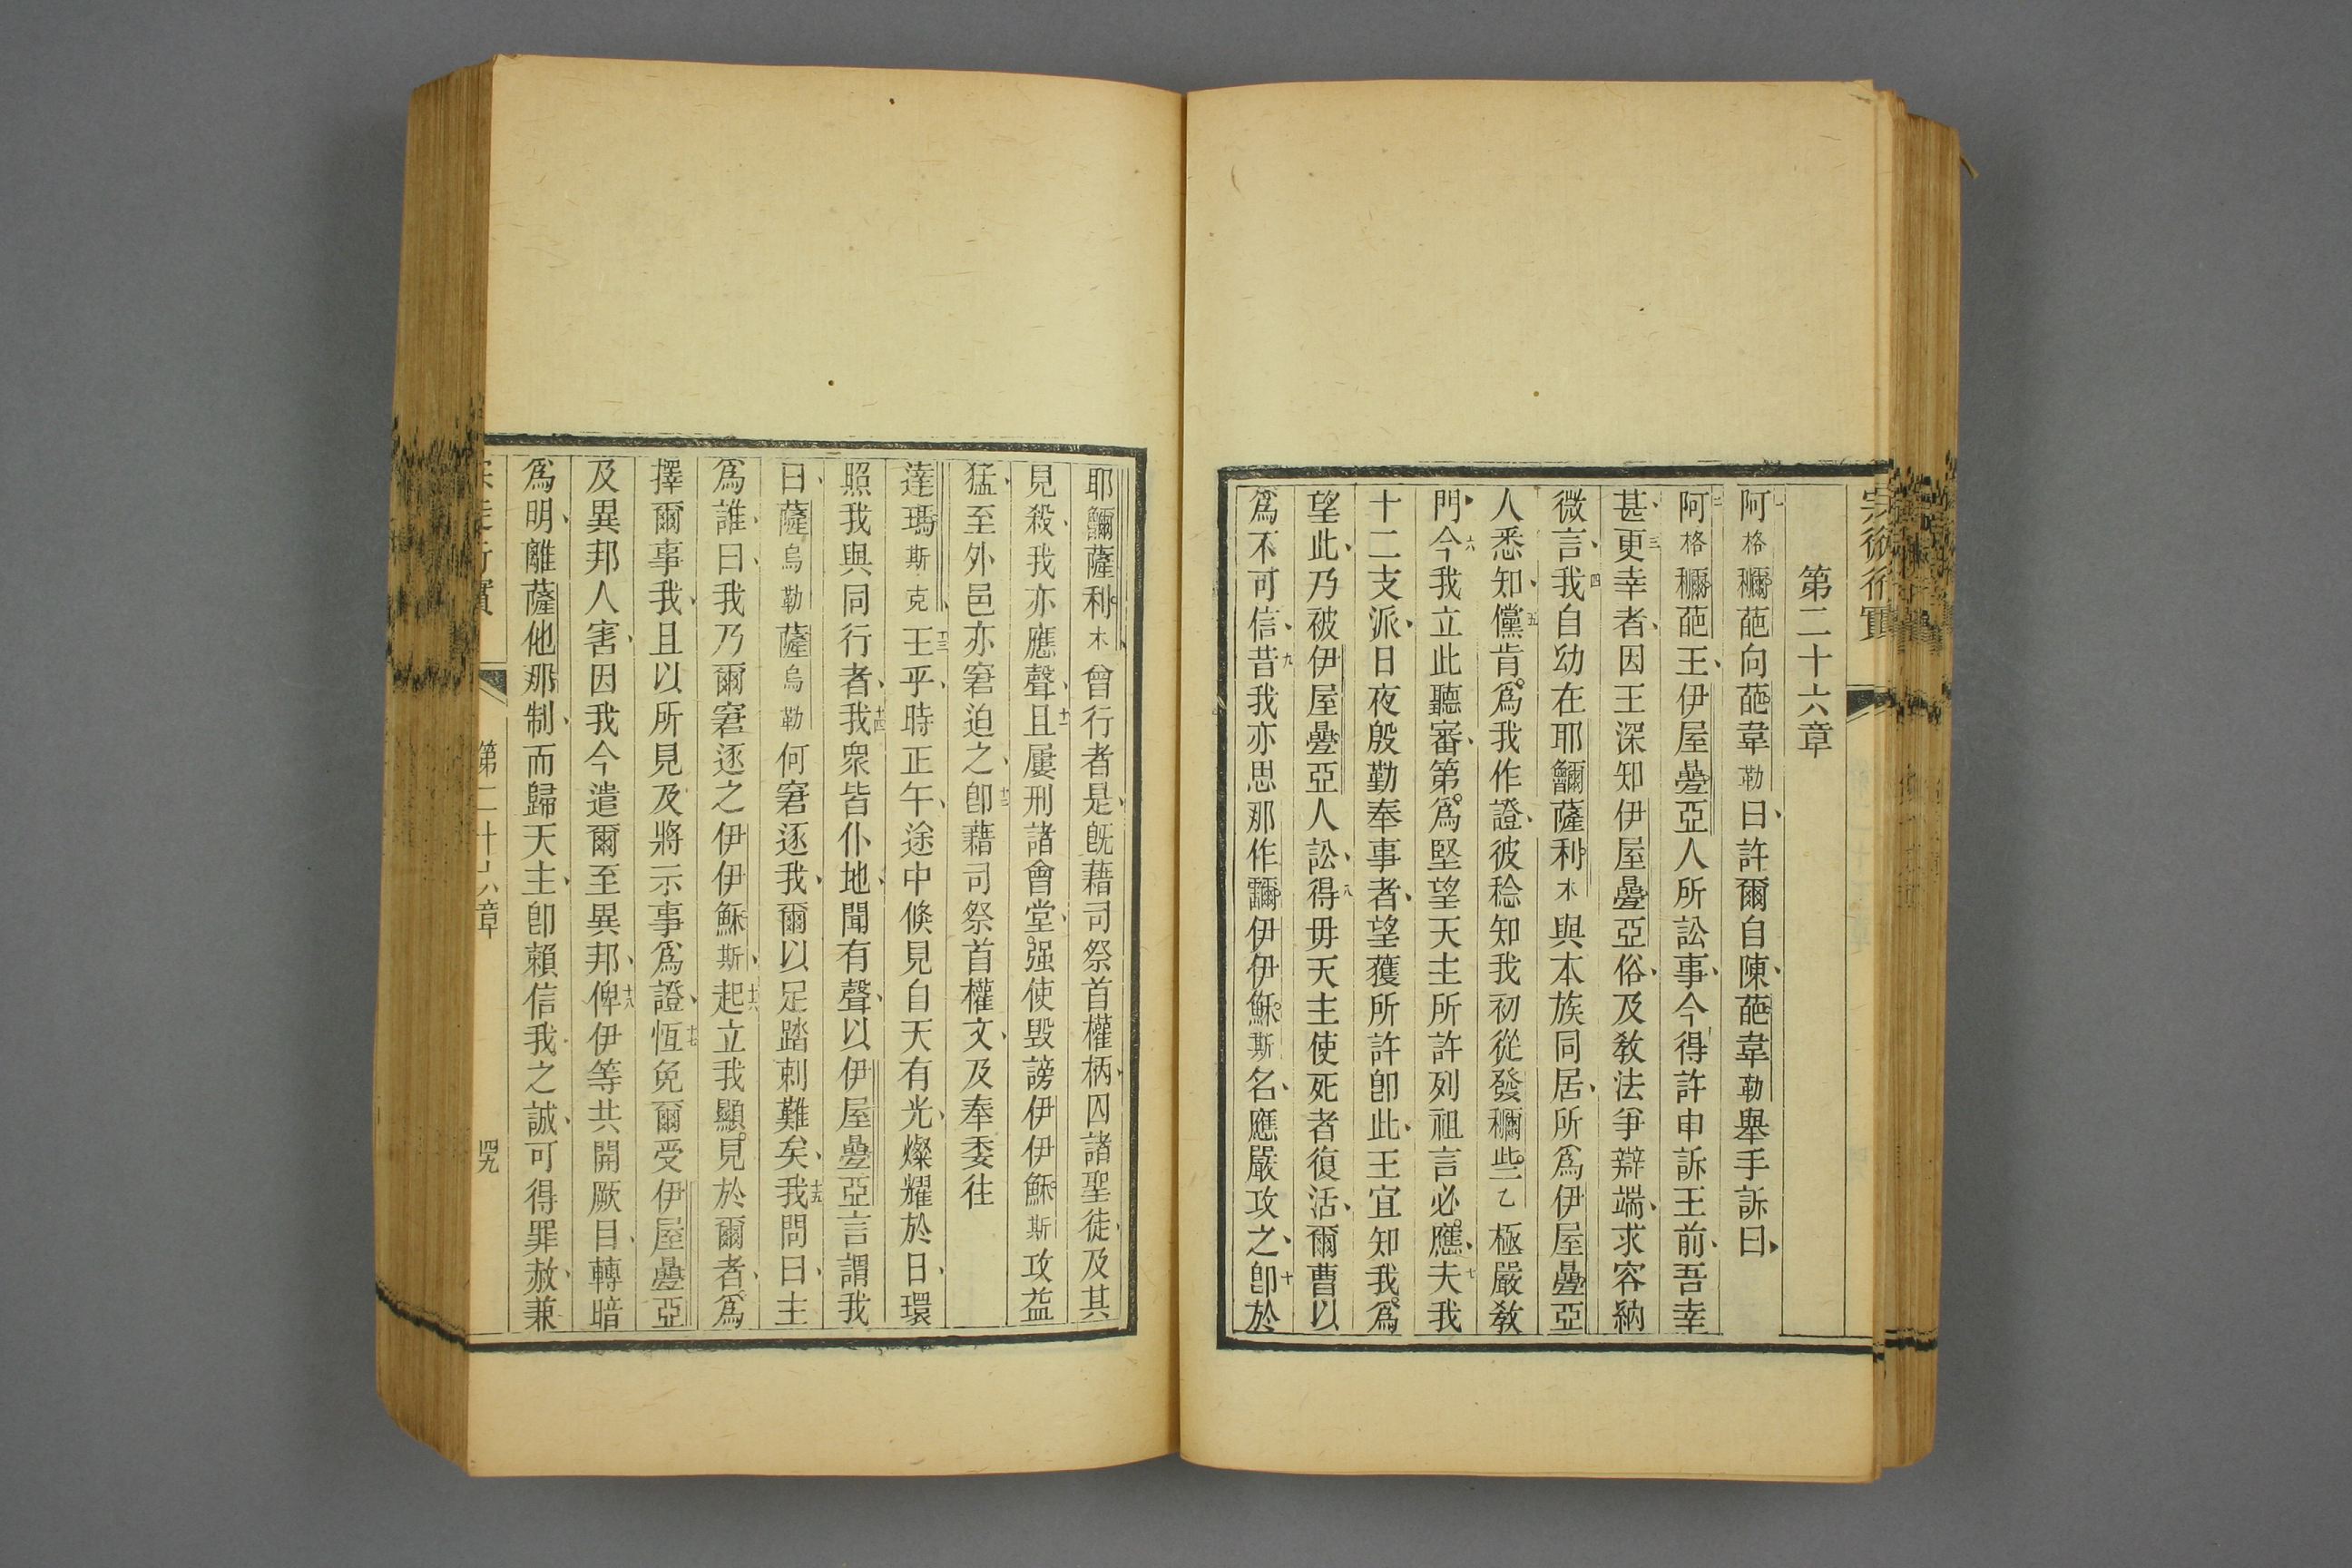 第二十六章
一阿格穪葩向葩韋勒曰、許爾自陳、葩韋勒舉手訴曰、
二阿格穪葩王、伊屋疊亞人所訟事、今得許申訴王前、吾幸
甚、三更幸者、因王深知伊屋疊亞俗、及教法爭辯端、求容納
微言、四我自幼在耶䥯薩利木與本族同居、所爲伊屋疊亞
人悉知、五儻肯爲我作證、彼稔知我初從發穪些乙極嚴教
門、六今我立此聽審、第爲堅望天主所許列祖言必應、七夫我
十二支派、日夜殷勤奉事者、望獲所許卽此、王宜知我爲
望此、乃被伊屋疊亞人訟、八得毋天主使死者復活、爾曹以
爲不可信、九昔我亦思那作爾伊伊穌斯名、應嚴攻之、十卽於
耶䥯薩利木曾行者是、旣藉司祭首權柄、囚諸聖徒、及其
見殺、我亦應聲、十一且屢刑諸會堂、强使毀謗伊伊穌斯攻益
猛、至外邑亦窘迫之、十二卽藉司祭首權文、及奉委往
達瑪斯克、十三王乎、時正午、途中倏見自天有光、燦耀於日、環
照我與同行者、十四我衆皆仆地、聞有聲、以伊屋疊亞言謂我
曰、薩烏勒薩烏勒何窘逐我、爾以足踏刺難矣、十五我問曰、主
爲誰、曰、我乃爾窘逐之伊伊穌斯、十六起立我顯見於爾者、爲
擇爾事我、且以所見及將示事爲證、十七恆免爾受伊屋疊亞
及異邦人害、因我今遣爾至異邦、十八俾伊等共開厥目、轉暗
爲明、離薩他那制、而歸天主、卽賴信我之誠、可得罪赦、兼
第二十六章
四九